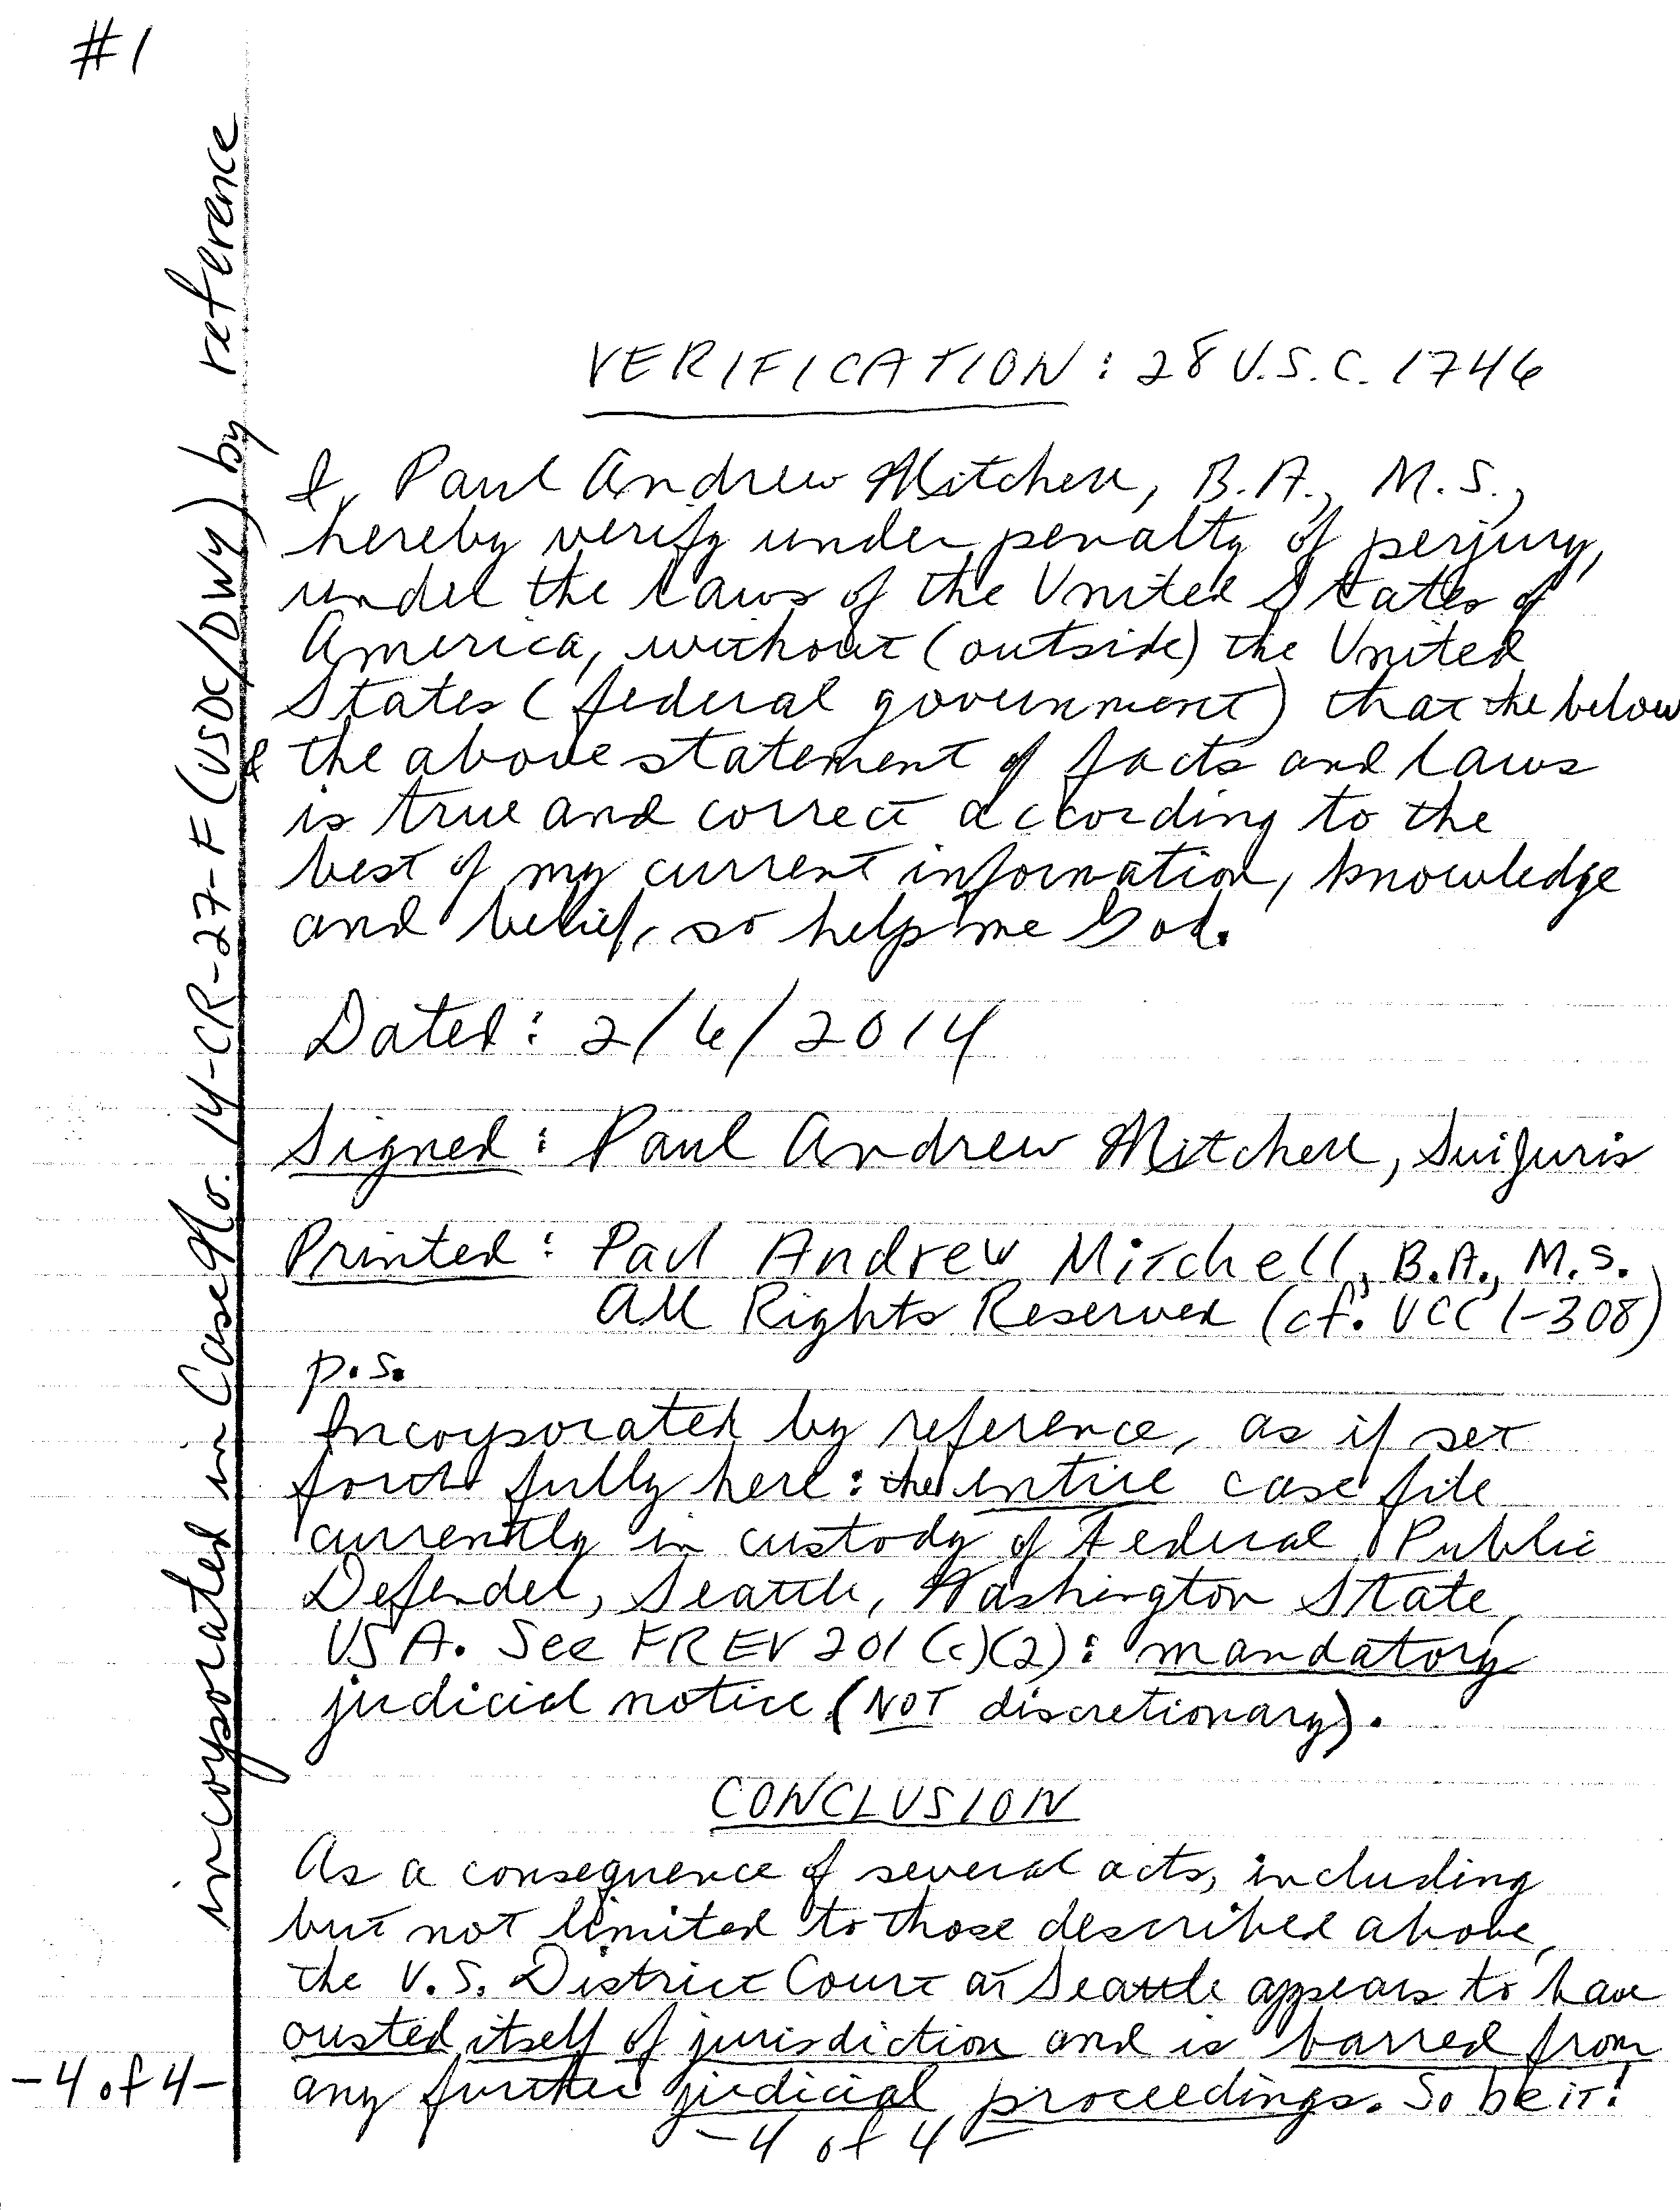 #1
incorporated in Case No. 14-CR-27-F (USDC/DWY) by reference
VERIFICATION: 28 U.S.C. 1746
I, Paul Andrew Mitchell, B.A., M.S.,
hereby verify under penalty of perjury,
under the laws of the United States of
America, without (outside) the United
States (federal government) that the below
& the above statement of facts and laws
is true and correct according to the
best of my current information, knowledge
and belief, so help me God.
Dated: 2/6/2014
Signed: Paul Andrew Mitchell, Sui Juris
Printed: Paul Andrew Mitchell, B.A., M.S.
All Rights Reserved (cf. UCC 1-308)
p.s.
Incorporated by reference, as if set
forth fully here: the entire case file
currently in custody of Federal Public
Defender, Seattle, Washington State,
USA. See FREV 201(c)(2): mandatory
judicial notice (NOT discretionary).
CONCLUSION
As a consequence of several acts, including
but not limited to those described above,
the U.S. District Court at Seattle appears to have
ousted itself of jurisdiction and is barred from
-4 of 4- any further judicial proceedings. So be it!
-4 of 4-